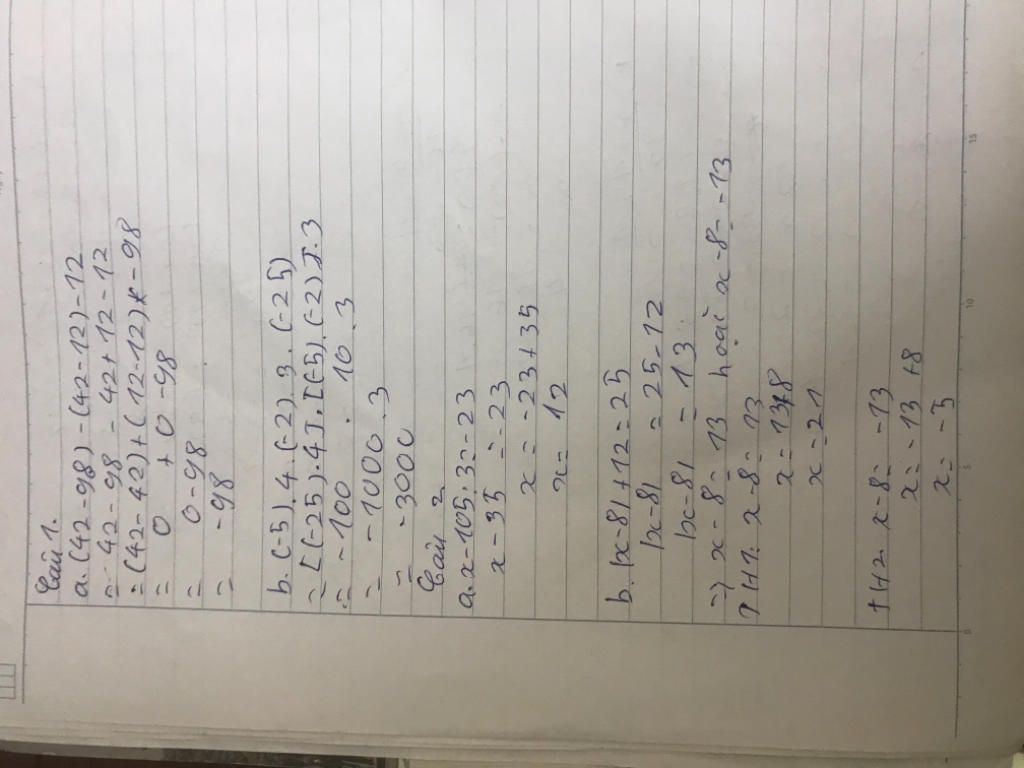 Bài 1.
a. (42-98) - (42-12) - 12
= 42 - 98 - 42 + 12 - 12
= (42 - 42) + (12 - 12) - 98
= 0 + 0 - 98
= 0 - 98
= - 98
b. (-5) . 4 . (-2) . 3 . (-25)
= [(-25) . 4] . [(-5) . (-2)] . 3
= -100 . 10 . 3
= -1000 . 3
= -3000
Bài 2
a. x - 105 : 3 = -23
x - 35 = -23
x = -23 + 35
x = 12
b. |x-8| + 12 = 25
|x-8| = 25 - 12
|x-8| = 13
=> x - 8 = 13 hoặc x - 8 = -13
TH1: x - 8 = 13
x = 13 + 8
x = 21
TH2: x - 8 = -13
x = -13 + 8
x = -5